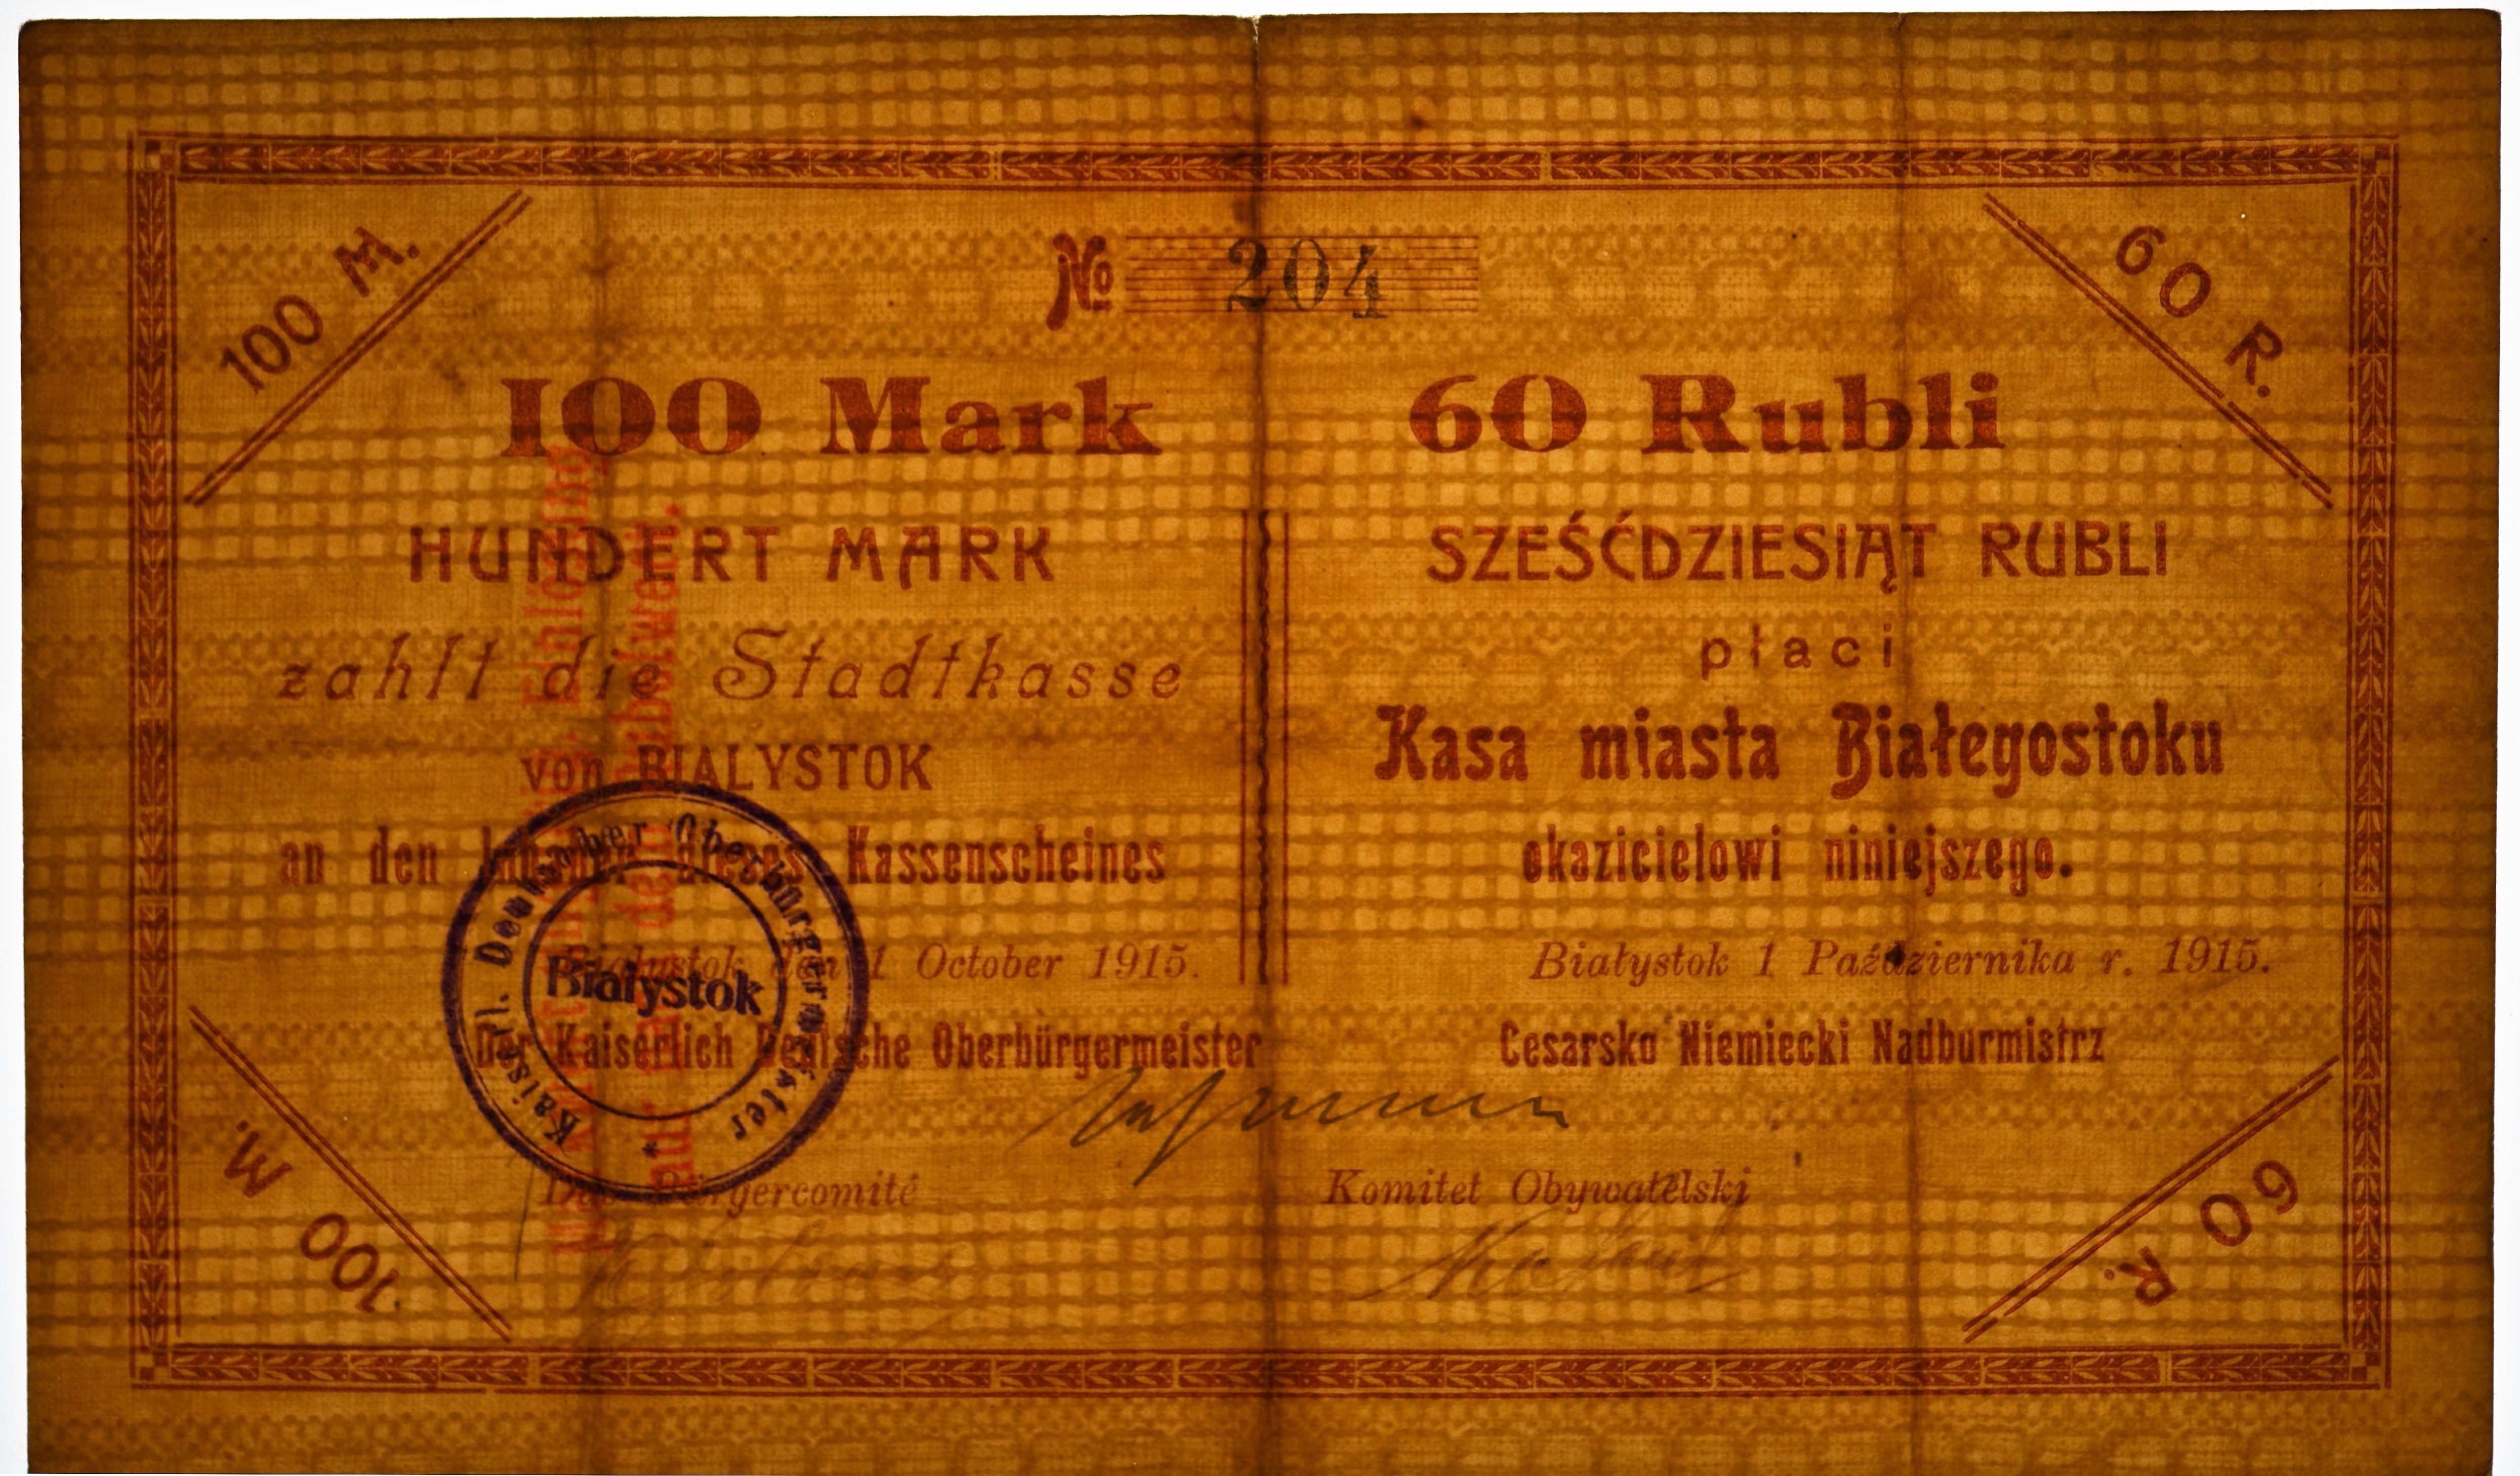 100 M.
60 R.
No 204
100 Mark
60 Rubli
HUNDERT MARK
SZEŚĆDZIESIĄT RUBLI
zahlt die Stadtkasse
płaci
von BIALYSTOK
Kasa miasta Białegostoku
an den Inhaber dieses Kassenscheines
okazicielowi niniejszego.
Bialystok den 1 October 1915.
Białystok 1 Października r. 1915.
Der Kaiserlich Deutsche Oberbürgermeister
Cesarsko Niemiecki Nadburmistrz
Das Bürgercomité
Komitet Obywatelski
100 M.
60 R.
Kaiserl. Deutscher Oberbürgermeister
Białystok
*
Einlösung
nur nach dem Rubelwert.